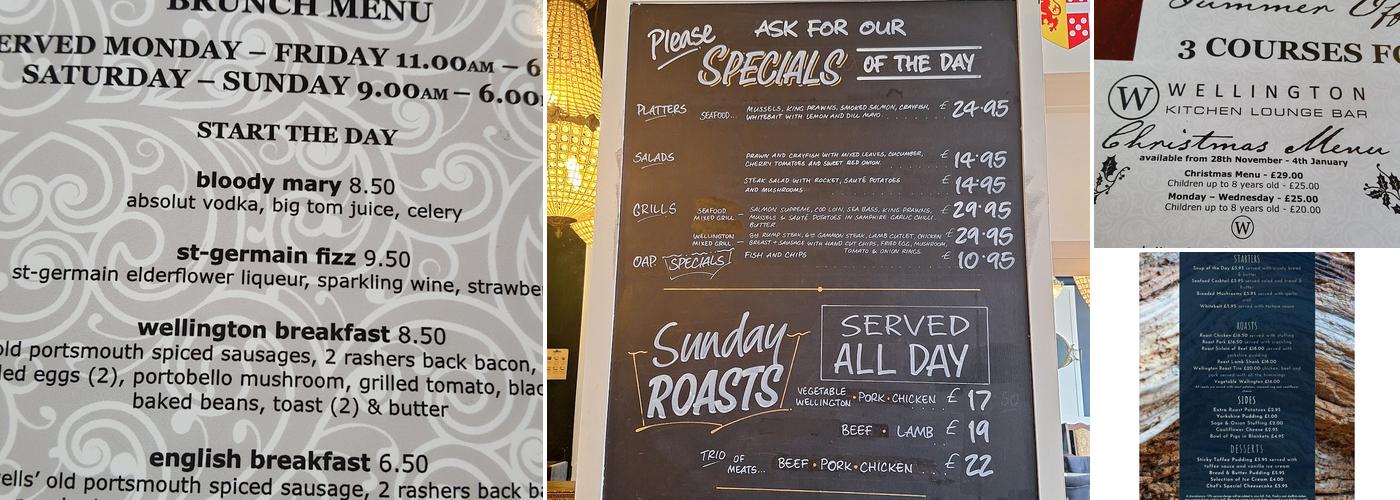 BRUNCH MENU
ERVED MONDAY – FRIDAY 11.00AM – 6
SATURDAY – SUNDAY 9.00AM – 6.00
START THE DAY
bloody mary 8.50
absolut vodka, big tom juice, celery
st-germain fizz 9.50
st-germain elderflower liqueur, sparkling wine, strawbe
wellington breakfast 8.50
old portsmouth spiced sausages, 2 rashers back bacon,
led eggs (2), portobello mushroom, grilled tomato, blac
baked beans, toast (2) & butter
english breakfast 6.50
ells' old portsmouth spiced sausage, 2 rashers back ba
Please ASK FOR OUR
SPECIALS OF THE DAY
PLATTERS SEAFOOD... MUSSELS, KING PRAWNS, SMOKED SALMON, CRAYFISH, £ 24.95
WHITEBAIT WITH LEMON AND DILL MAYO
SALADS PRAWN AND CRAYFISH WITH MIXED LEAVES, CUCUMBER, £ 14.95
CHERRY TOMATOES AND SWEET RED ONION
STEAK SALAD WITH ROCKET, SAUTÉ POTATOES £ 14.95
AND MUSHROOMS
GRILLS SEAFOOD MIXED GRILL – SALMON SUPREME, COD LOIN, SEA BASS, KING PRAWNS, £ 29.95
MUSSELS & SAUTÉ POTATOES IN SAMPHIRE GARLIC CHILLI
BUTTER
WELLINGTON MIXED GRILL – 8oz RUMP STEAK, 6oz GAMMON STEAK, LAMB CUTLET, CHICKEN £ 29.95
BREAST + SAUSAGE WITH HAND CUT CHIPS, FRIED EGG, MUSHROOM,
TOMATO & ONION RINGS
OAP SPECIALS FISH AND CHIPS £ 10.95
Sunday ROASTS
SERVED
ALL DAY
VEGETABLE WELLINGTON • PORK • CHICKEN £ 17
BEEF • LAMB £ 19
TRIO OF MEATS... BEEF • PORK • CHICKEN £ 22
Summer Of
3 COURSES FO
W WELLINGTON
KITCHEN LOUNGE BAR
Christmas Menu
available from 28th November - 4th January
Christmas Menu - £29.00
Children up to 8 years old - £25.00
Monday – Wednesday - £25.00
Children up to 8 years old - £20.00
W
STARTERS
Soup of the Day £5.95 served with crusty bread
& butter
Seafood Cocktail £5.95 served salad and bread &
butter
Breaded Mushrooms £5.95 served with garlic
Whitebait £5.95 served with tartare sauce
ROASTS
Roast Chicken £16.50 served with stuffing
Roast Pork £16.50 served with crackling
Roast Sirloin of Beef £18.00 served with
yorkshire pudding
Roast Lamb Shank £18.00
Wellington Roast Trio £20.00 chicken, beef and
pork served with all the trimmings
Vegetable Wellington £16.00
SIDES
Extra Roast Potatoes £2.95
Yorkshire Pudding £1.00
Sage & Onion Stuffing £2.00
Cauliflower Cheese £2.95
Bowl of Pigs in Blankets £4.95
DESSERTS
Sticky Toffee Pudding £5.95 served with
toffee sauce and vanilla ice cream
Bread & Butter Pudding £5.95
Selection of Ice Cream £4.00
Chef's Special Cheesecake £5.95